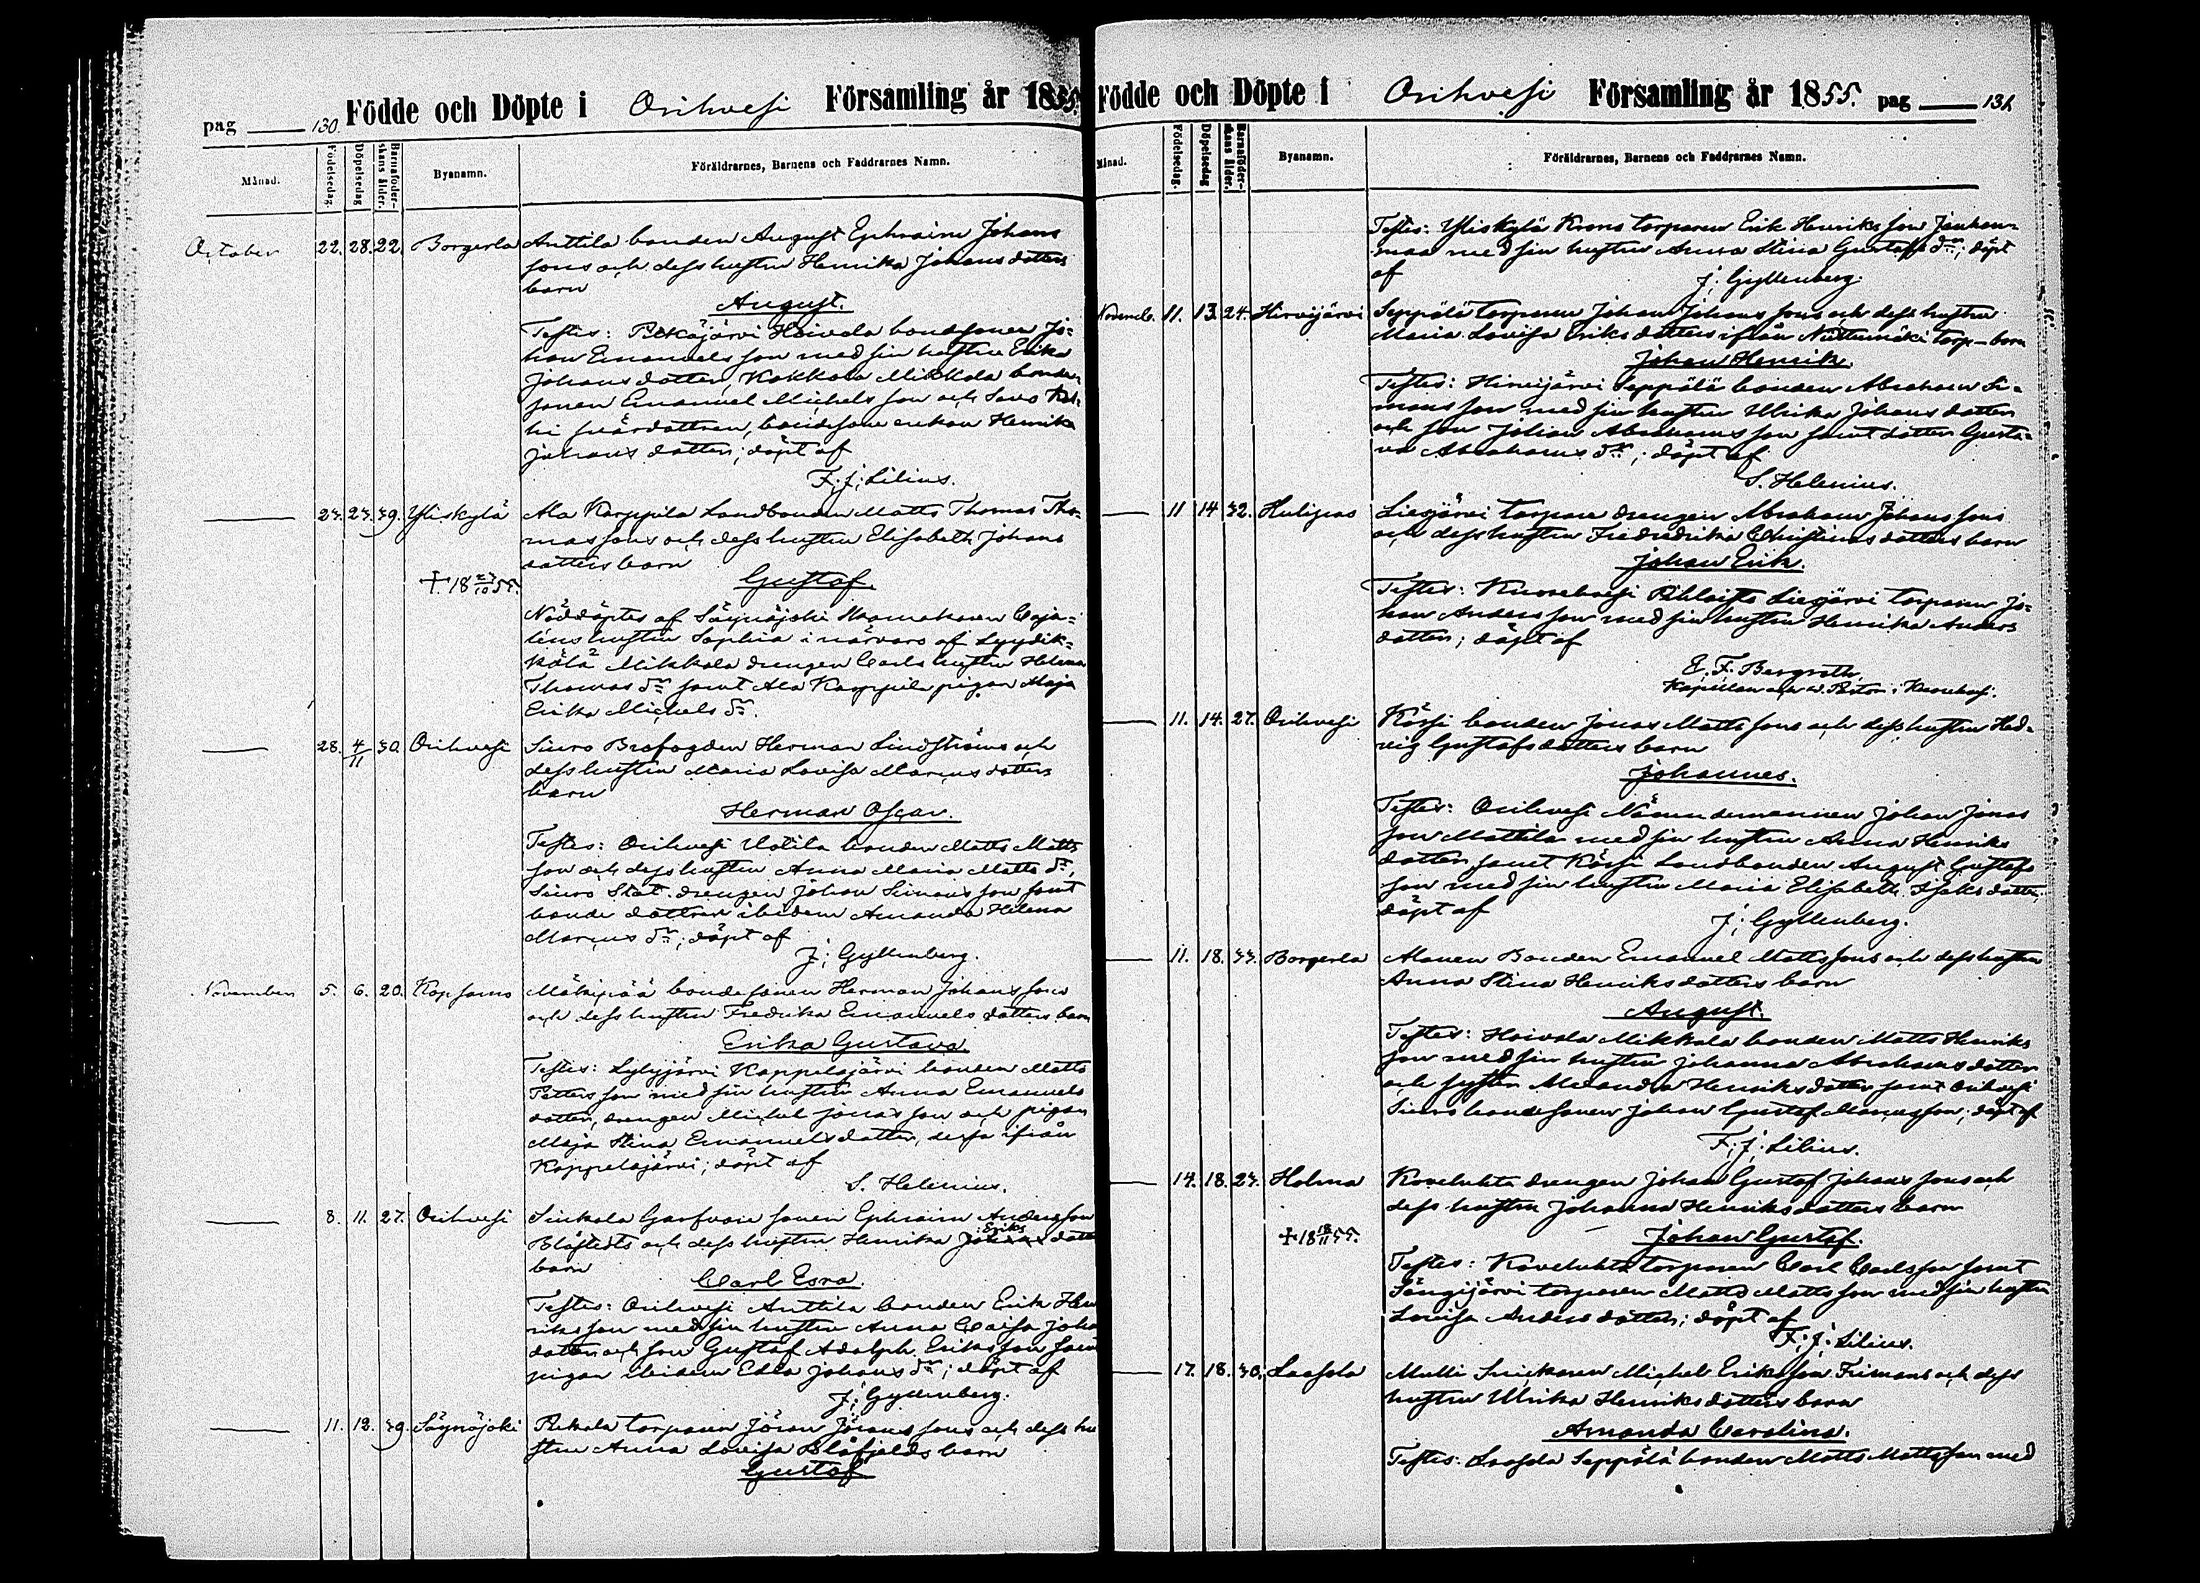 pag 130. Födde och Döpte i Orihvesi Församling år 1855.
Månad. Födelsedag. Döpelsedag Barnaföder-skans ålder. Byanamn. Föräldrarnes, Barnens och Faddrarnes Namn.
October 22. 28. 22. Borgerla Anttila bonden August Ephraim Johans
sons och dess hustru Henrika Johans dotters
barn
August.
Testes: Pitkäjärvi Heivola bondesonen Jo=
han Emanuels son med sin hustru Erika
Johans dotter, Kokkola Mikkola bonde
sonen Emanuel Michels son och
svärdottren, bondesone enkan Henrika
Johans dotter; döpt af
F. J. Lilius.
23. 23. 39. Yliskylä Ala Karppila Landbonden Matts Thomas Tho=
mas sons och dess hustru Elisabeth Johans
dotters barn
† 18 23/10 55. Gustaf
Nöddöptes af Säynäjoki Caja=
lins hustru Sophia i närvaro af Lyydik=
kälä Mikkola drengen Carls hustru Helena
Thomas dr samt Ala Karppila pigan Maja
Erika Michels dr.
28. 4/11 30. Orihvesi Siuro Brofogden Herman Lindströms och
dess hustru Maria Lovisa Marcus dotters
barn
Herman Oscar.
Testes: Orihvesi Uotila bonden Matts Matts
son och dess hustru Anna Maria Matts dr,
Siuro Stat drengen Johan Simons son samt
bonde dottren ibidem Amanda Helena
Marcus dr; döpt af
J. Gyllenberg.
November 5. 6. 20. Kopsamo Mäkipää bondesonen Herman Johans sons
och dess hustru Fredrika Emanuels dotters barn
Erika Gustava.
Testes: Lylyjärvi Kappelajärvi bonden Matts
Petters son med sin hustru Anna Emanuels
dotter, drengen Michel Jonas son och pigan
Maja Stina Emanuels dotter, dessa ifrån
Kappelajärvi; döpt af
S. Helenius.
8. 11. 27. Orihvesi Sinkola Garfvare sonen Ephraim Andersson
Blåfiedts och dess hustru Henrika Johans Eriks dotter
barn
Carl Esra.
Testes: Orihvesi Anttila bonden Erik Hen
riks son med sin hustru Anna Caisa Joha
dotter och son Gustaf Adolph Eriks son samt
pigan ibidem Edla Johans dr; döpt af
J. Gyllenberg.
11. 13. 39. Säynäjoki Pukala torparen Jöran Jörans sons och dess hu
stru Anna Lovisa Blåfjelds barn
Gustaf
Födde och Döpte i Orihvesi Församling år 1855. pag 131.
Månad. Födelsedag. Döpelsedag Barnaföder-skans ålder. Byanamn. Föräldrarnes, Barnens och Faddrarnes Namn.
Testes: Yliskylä Krono torparen Erik Henriks son Jauhon=
maa med sin hustru Anna Stina Gustafs dr; döpt
af
J. Gyllenberg.
Novemb. 11. 13. 24. Hirvijärvi Seppälä torparen Johan Johans sons och dess hustru
Maria Lovisa Eriks dotters ifrån torp barn
Johan Henrik.
Testes: Hirvijärvi Seppälä bonden Abraham Si=
mons son med sin hustru Ulrika Johans dotter
och son Johan Abrahams son samt dotter Gusta=
va Abrahams dr; döpt af
S. Helenius.
11 14 32. Hulipas Liesjärvi torpare drengen Abraham Johans sons
och dess hustru Fredrika Christians dotters barn
Johan Erik.
Testes: Kuorehvesi Pihlais Liesjärvi torparen Jo=
han Anders son med sin hustru Henrika Anders
dotter; döpt af
E. F. Bergroth
Kapellan och v. Pastor i Kuorehvesi.
11. 14. 27. Orihvesi Kärsi bonden Jonas Matts sons och dess hustru Hed=
vig Gustafs dotters barn
Johannes.
Testes: Orihvesi Nämndemannen Johan Jonas
son Mattila med sin hustru Anna Henriks
dotter samt Kärsi Landbonden August Gustafs
son med sin hustru Maria Elisabeth Isaks dotter;
döpt af
J. Gyllenberg.
11. 18. 33. Borgerla Manen Bonden Emanuel Matts sons och dess hustru
Anna Stina Henriks dotters barn
August.
Testes: Hoivala Mikkola bonden Matts Henriks
son med sin hustru Johanna Abrahams dotter
och syster Meranda Henriks dotter samt Orihvesi
Siuro bondesonen Johan Gustaf Marcusson; döpt af
F. J. Lilius.
14. 18. 23. Holma Kovelahti drengen Johan Gustaf Johans sons och
dess hustru Johanna Henriks dotters barn
† 18 18/11 55. Johan Gustaf.
Testes: Kovelahti torparen Carl Carls son samt
Längijärvi torparen Matts Matts son med sin hustru
Lovisa Anders dotter; döpt af
F. J. Lilius.
17. 18. 30. Laasola Mulli Snickaren Michel Eriks son Frimans och dess
hustru Ulrika Henriks dotters barn
Amanda Carolina.
Testes: Laasola Seppälä bonden Matts Mattsson med